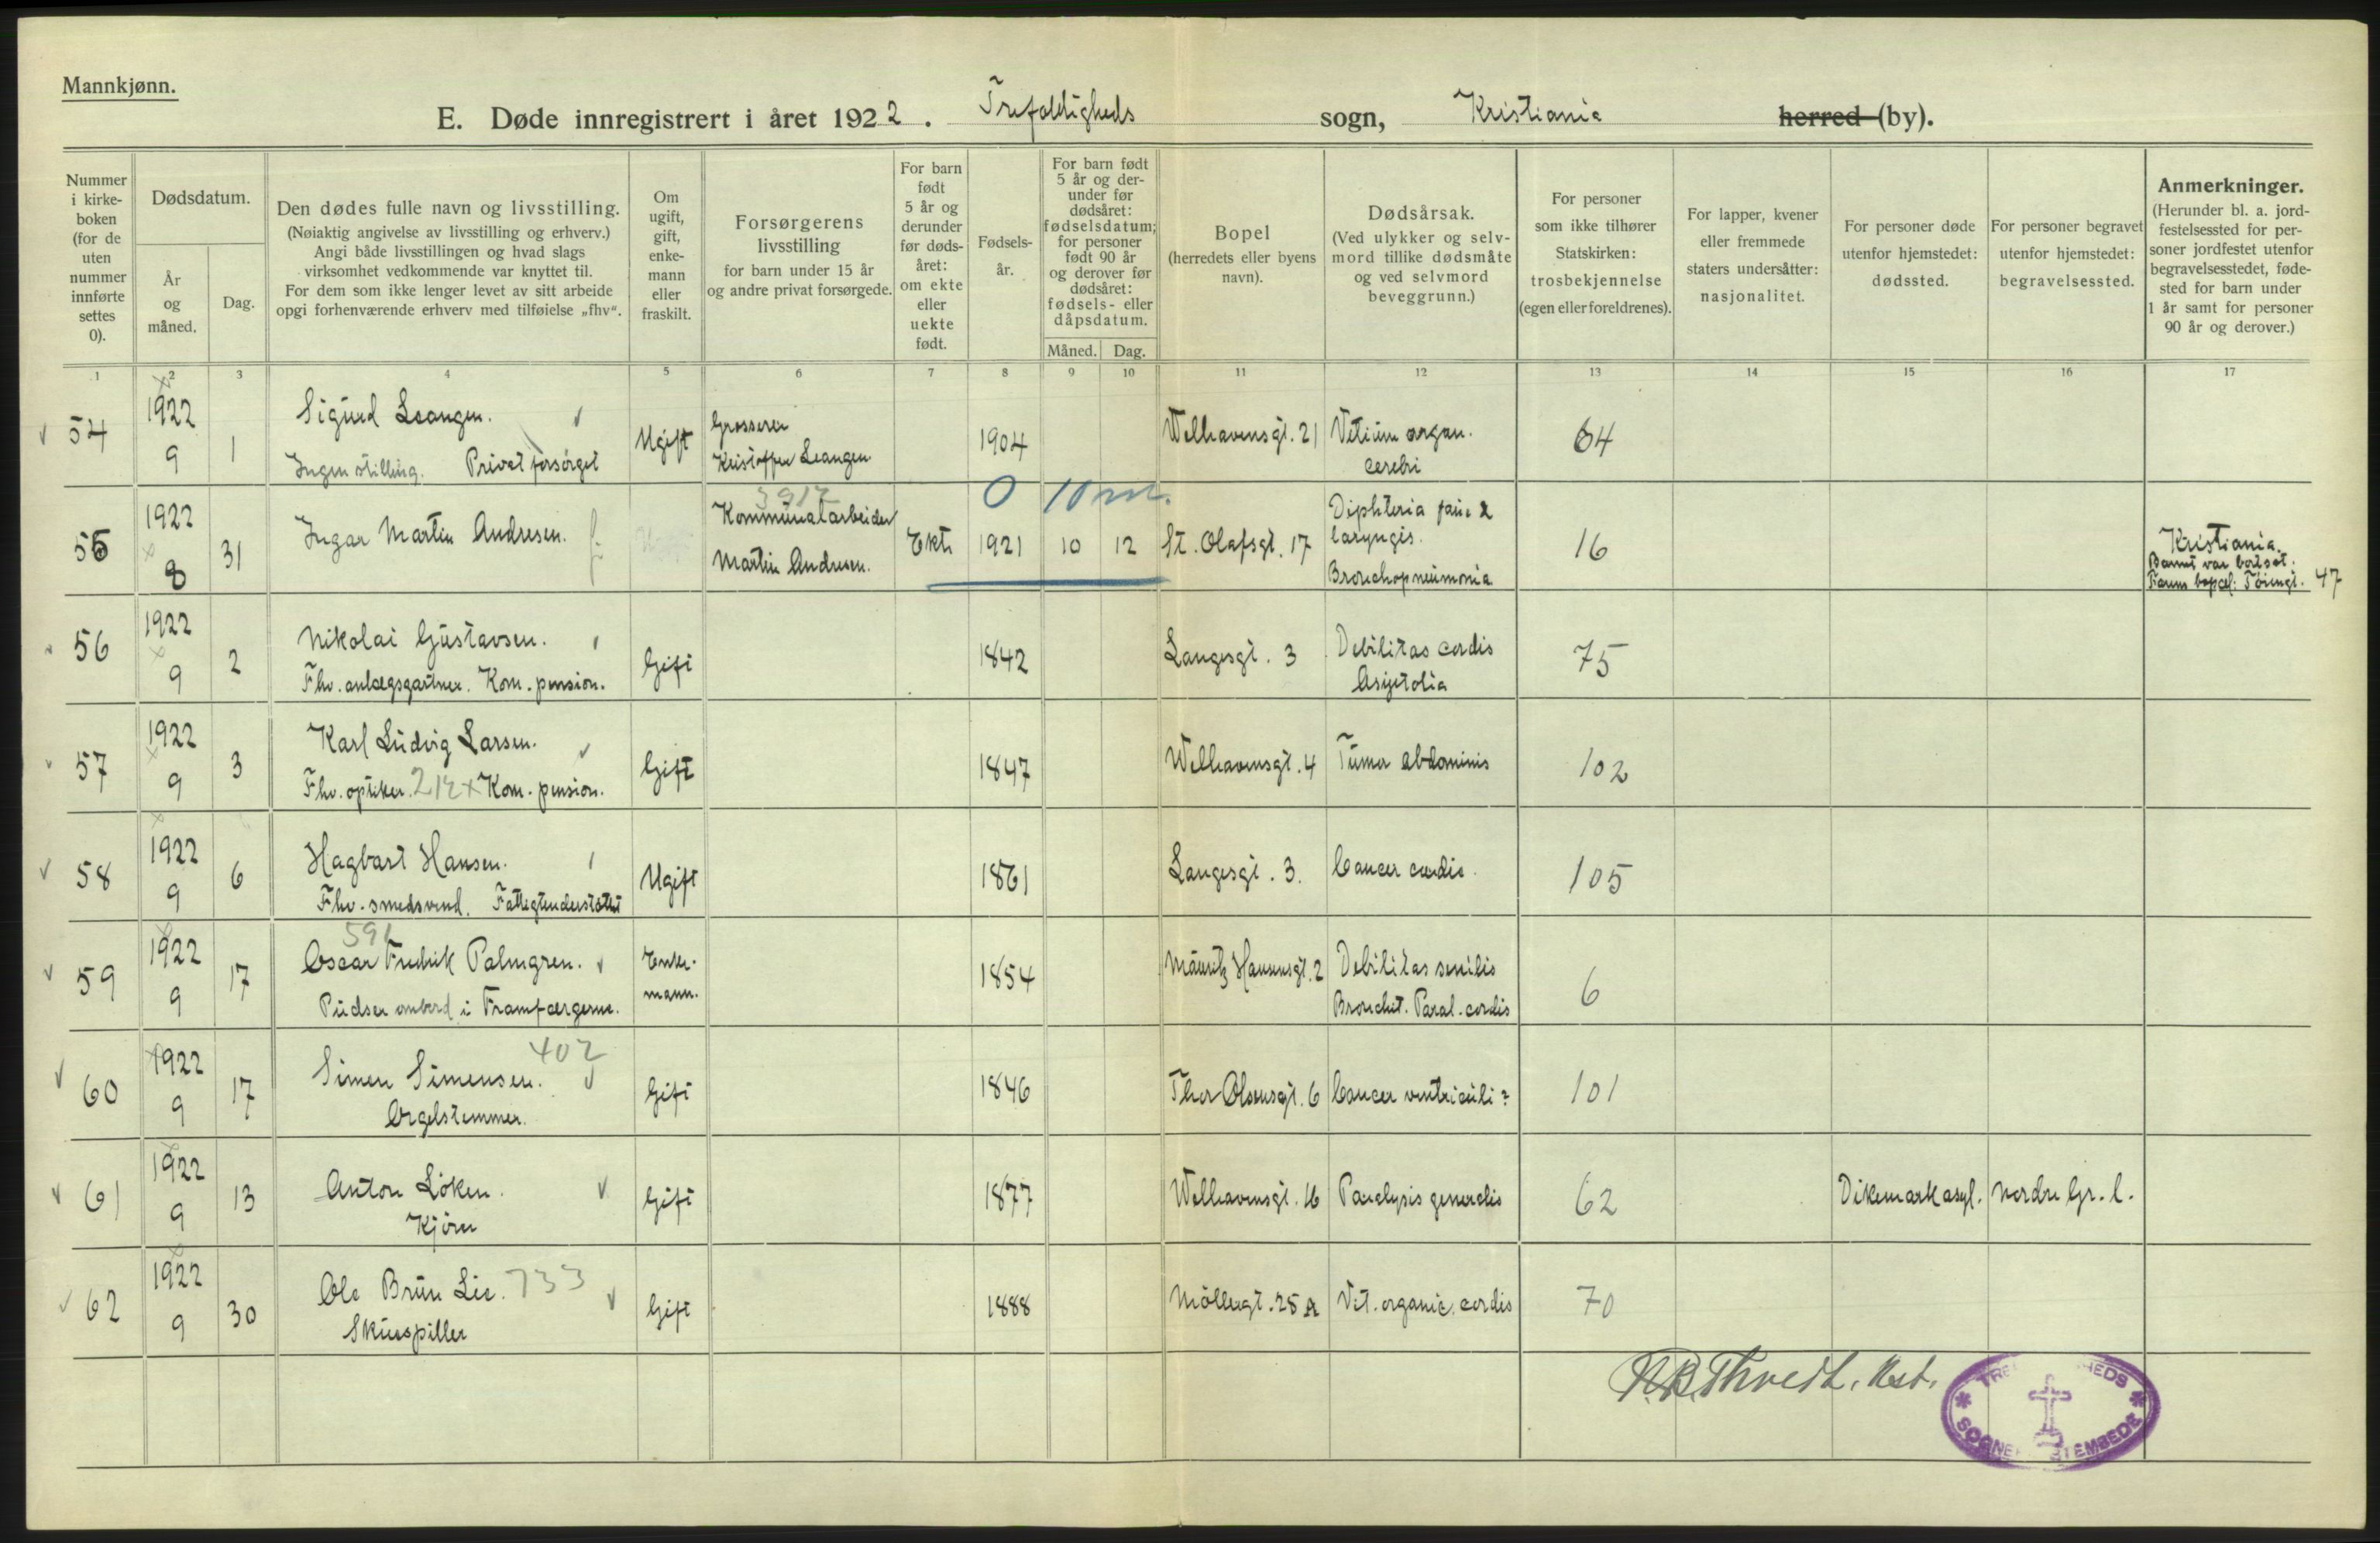 Mannkjønn.
E. Døde innregistrert i året 1922. Trefoldigheds sogn, Kristiania herred (by).
Nummer i kirkeboken (for de uten nummer innførte settes 0).
Dødsdatum.
År og måned.
Dag.
Den dødes fulle navn og livsstilling.
(Nøiaktig angivelse av livsstilling og erhverv.)
Angi både livsstillingen og hvad slags
virksomhet vedkommende var knyttet til.
For dem som ikke lenger levet av sitt arbeide
opgi forhenværende erhverv med tilføielse „fhv“.
Om ugift, gift, enkemann eller fraskilt.
Forsørgerens livsstilling
for barn under 15 år
og andre privat forsørgede.
For barn født 5 år og derunder før dødsåret: om ekte eller uekte født.
Fødselsår.
For barn født 5 år og derunder før dødsåret: fødselsdatum; for personer født 90 år og derover før dødsåret: fødsels- eller dåpsdatum.
Måned. Dag.
Bopel
(herredets eller byens navn).
Dødsårsak.
(Ved ulykker og selvmord tillike dødsmåte og ved selvmord beveggrunn.)
For personer som ikke tilhører Statskirken: trosbekjennelse (egen eller foreldrenes).
For lapper, kvener eller fremmede staters undersåtter: nasjonalitet.
For personer døde utenfor hjemstedet: dødssted.
For personer begravet utenfor hjemstedet: begravelsessted.
Anmerkninger.
(Herunder bl. a. jordfestelsessted for personer jordfestet utenfor begravelsesstedet, fødested for barn under 1 år samt for personer 90 år og derover.)
1 2 3 4 5 6 7 8 9 10 11 12 13 14 15 16 17
54 1922 9 1 Sigurd Leangen. Ingen stilling. Privat forsörget Ugift Grosserer Kristoffer Leangen. 1904 Welhavensgt. 21 Vitium organ. cerebri 64
55 1922 8 31 Ingar Martin Andresen. 3917 Kommunalarbeider Martin Andresen. Ekte 0 10 m. 1921 10 12 St. Olafsgt. 17 Diphteria fauc & laryngis. Bronchopneumonia 16 Kristiania. Barnet var bortsat. Farens bopæl: Töiengt. 47
56 1922 9 2 Nikolai Gustavsen. Fhv. anlægsgartner. Kom. pension. Gift 1842 Langesgt. 3 Debilitas cordis Asystolia 75
57 1922 9 3 Karl Ludvig Larsen. Fhv. optiker. 212x Kom. pension. Gift 1847 Welhavensgt. 4 Tumor abdominis 102
58 1922 9 6 Hagbart Hansen. Fhv. smedsvend. Fattigunderstöttet Ugift 1861 Langesgt. 3. Cancer cardia. 105
59 1922 9 17 591 Oscar Fredrik Palmgren. Pudser ombord i Framfærgerne. Enkemann. 1854 Mauritz Hansensgt. 2 Debilitas senilis Bronchit. Paral. cordis 6
60 1922 9 17 402 Simen Simensen. Orgelstemmer. Gift 1846 Thor Olsensgt. 6 Cancer ventriculi? 101
61 1922 9 13 Anton Löken. Kjörer Gift 1877 Welhavensgt. 16 Paralysis generalis 62 Dikemark asyl. Nordre Gr. l.
62 1922 9 30 Ole Brun Lie. 733 Skuespiller Gift 1888 Möllergt. 25 A Vit. organic. cordis 70